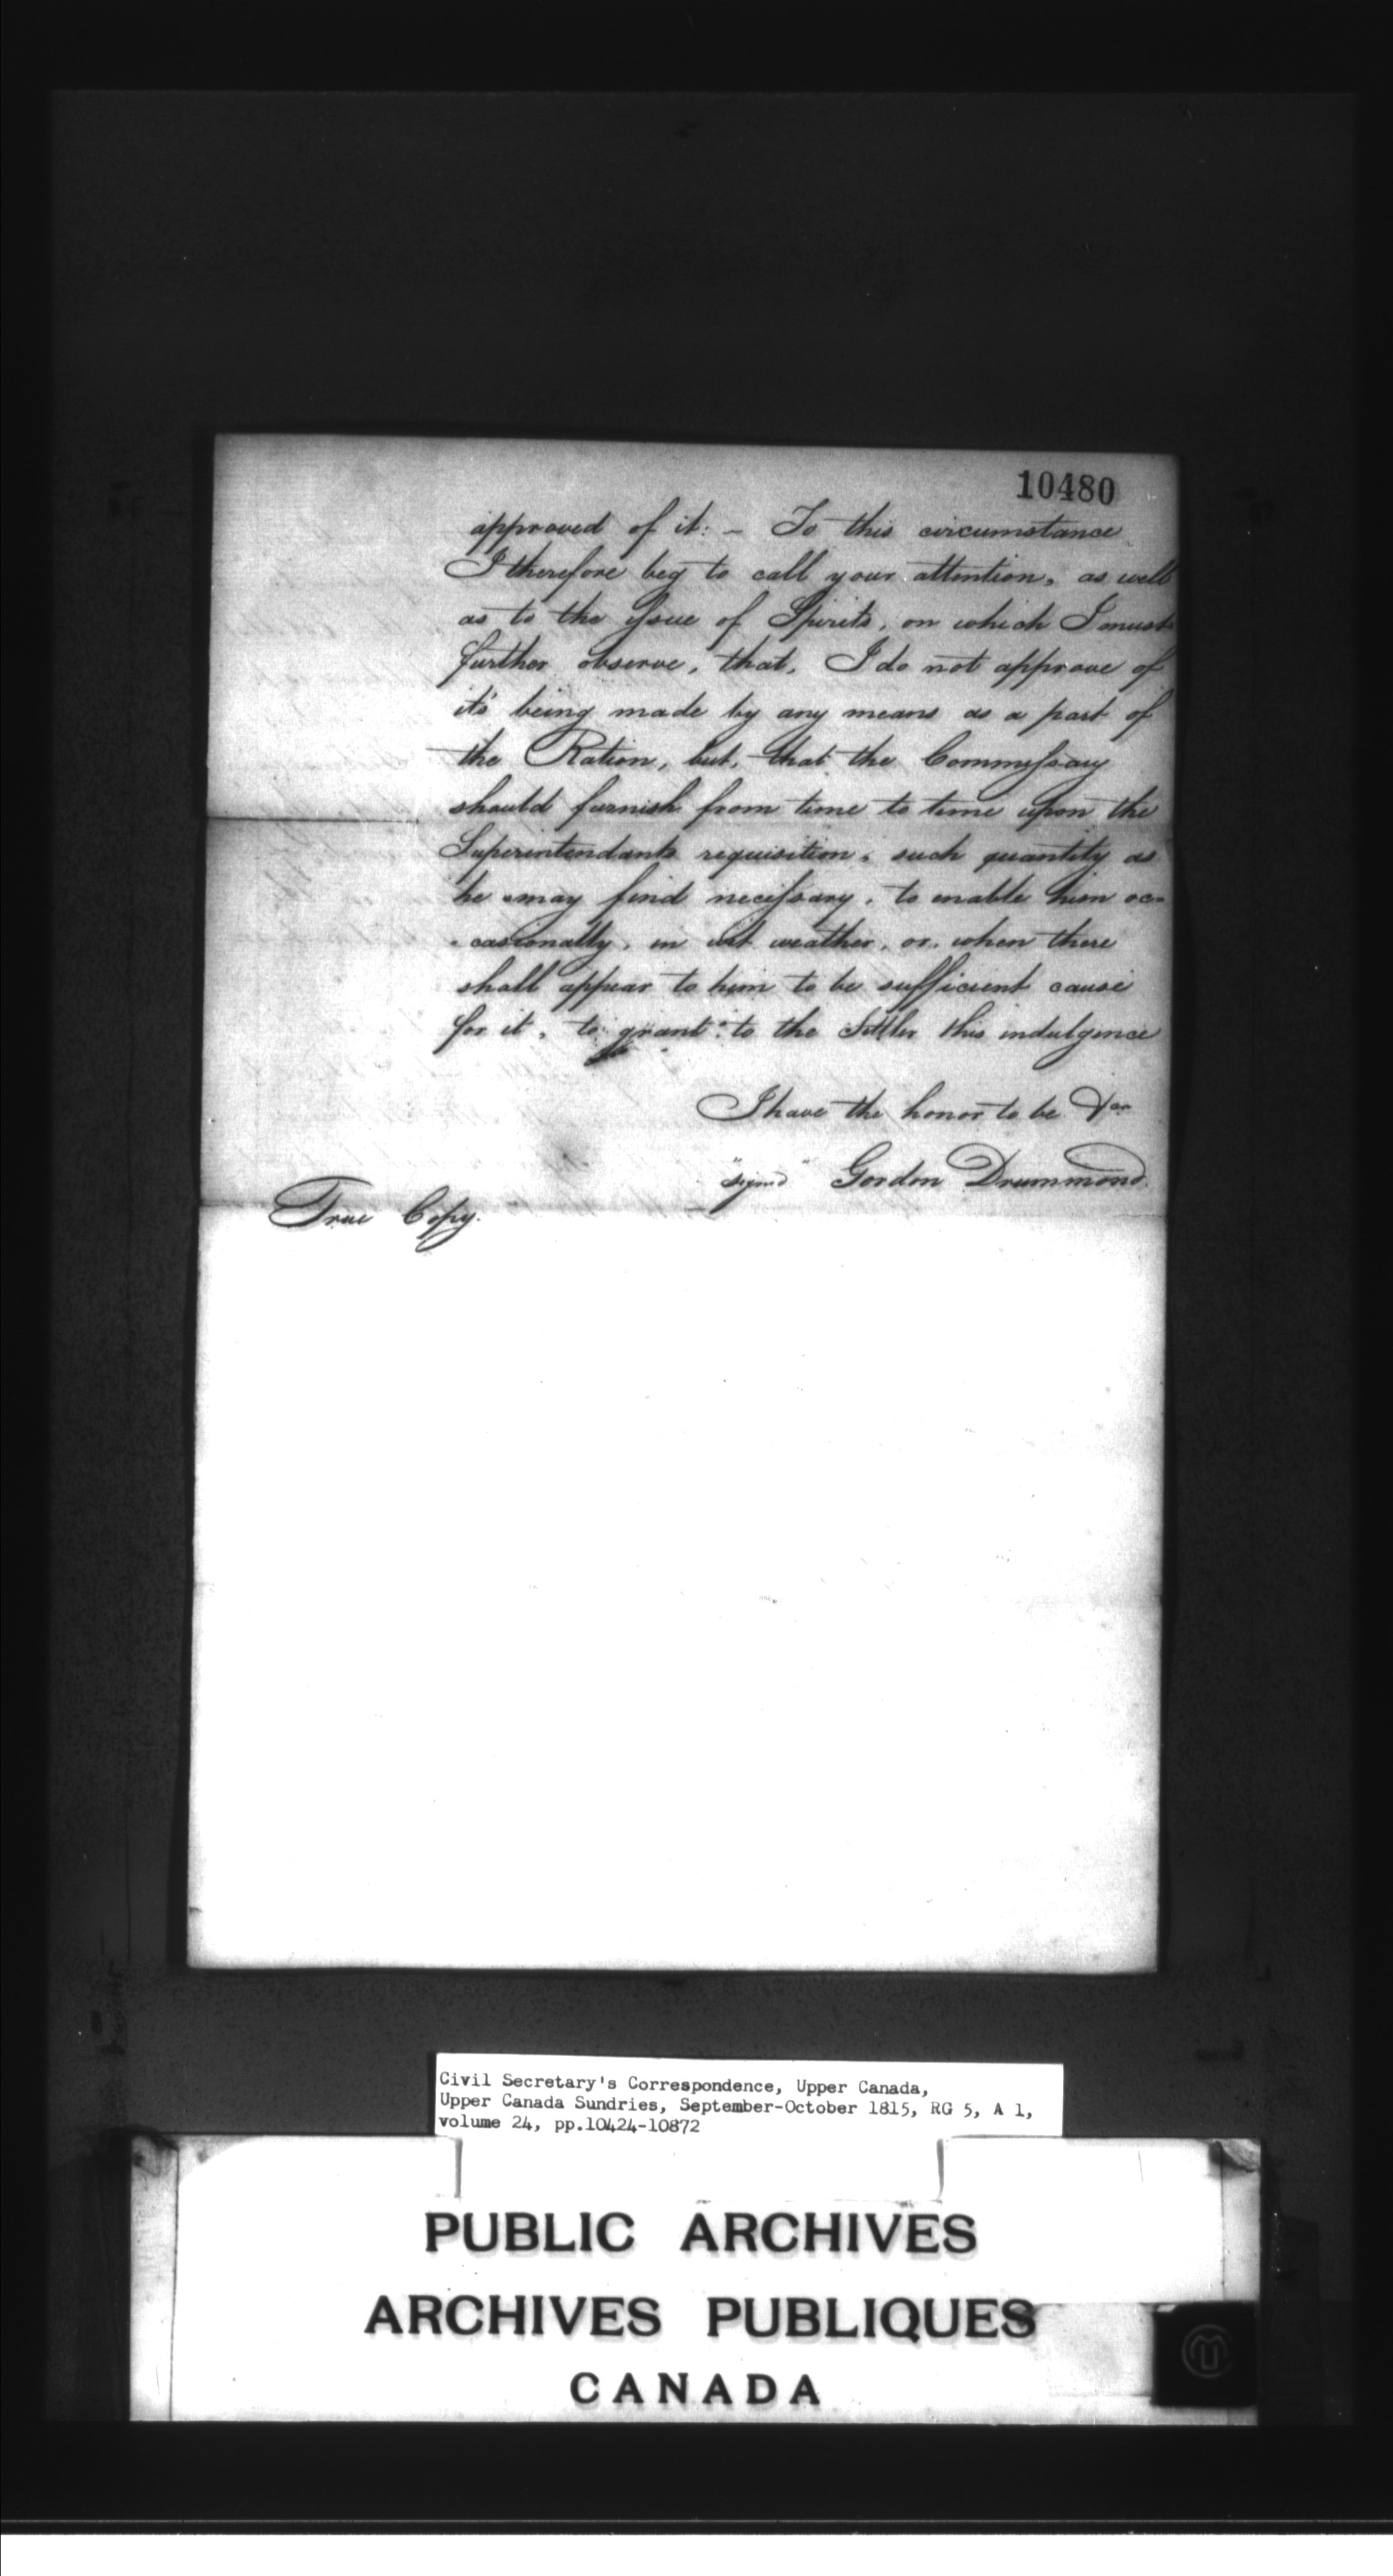 10480
approved of it: – To this circumstance
I therefore beg to call your attention, as well
as to the issue of Spirits, on which I must
further observe, that, I do not approve of
it's being made by any means as a part of
the Ration, but, that the Commissary
should furnish from time to time upon the
Superintendants requisition, such quantity as
he may find necessary, to enable him oc-
-casionally, in wet weather, or, when there
shall appear to him to be sufficient cause
for it, to grant to the Settler this indulgence
I have the honor to be &ca
"signd" Gordon Drummond.
True Copy.
Civil Secretary's Correspondence, Upper Canada,
Upper Canada Sundries, September-October 1815, RG 5, A 1,
volume 24, pp.10424-10872
PUBLIC ARCHIVES
ARCHIVES PUBLIQUES
CANADA